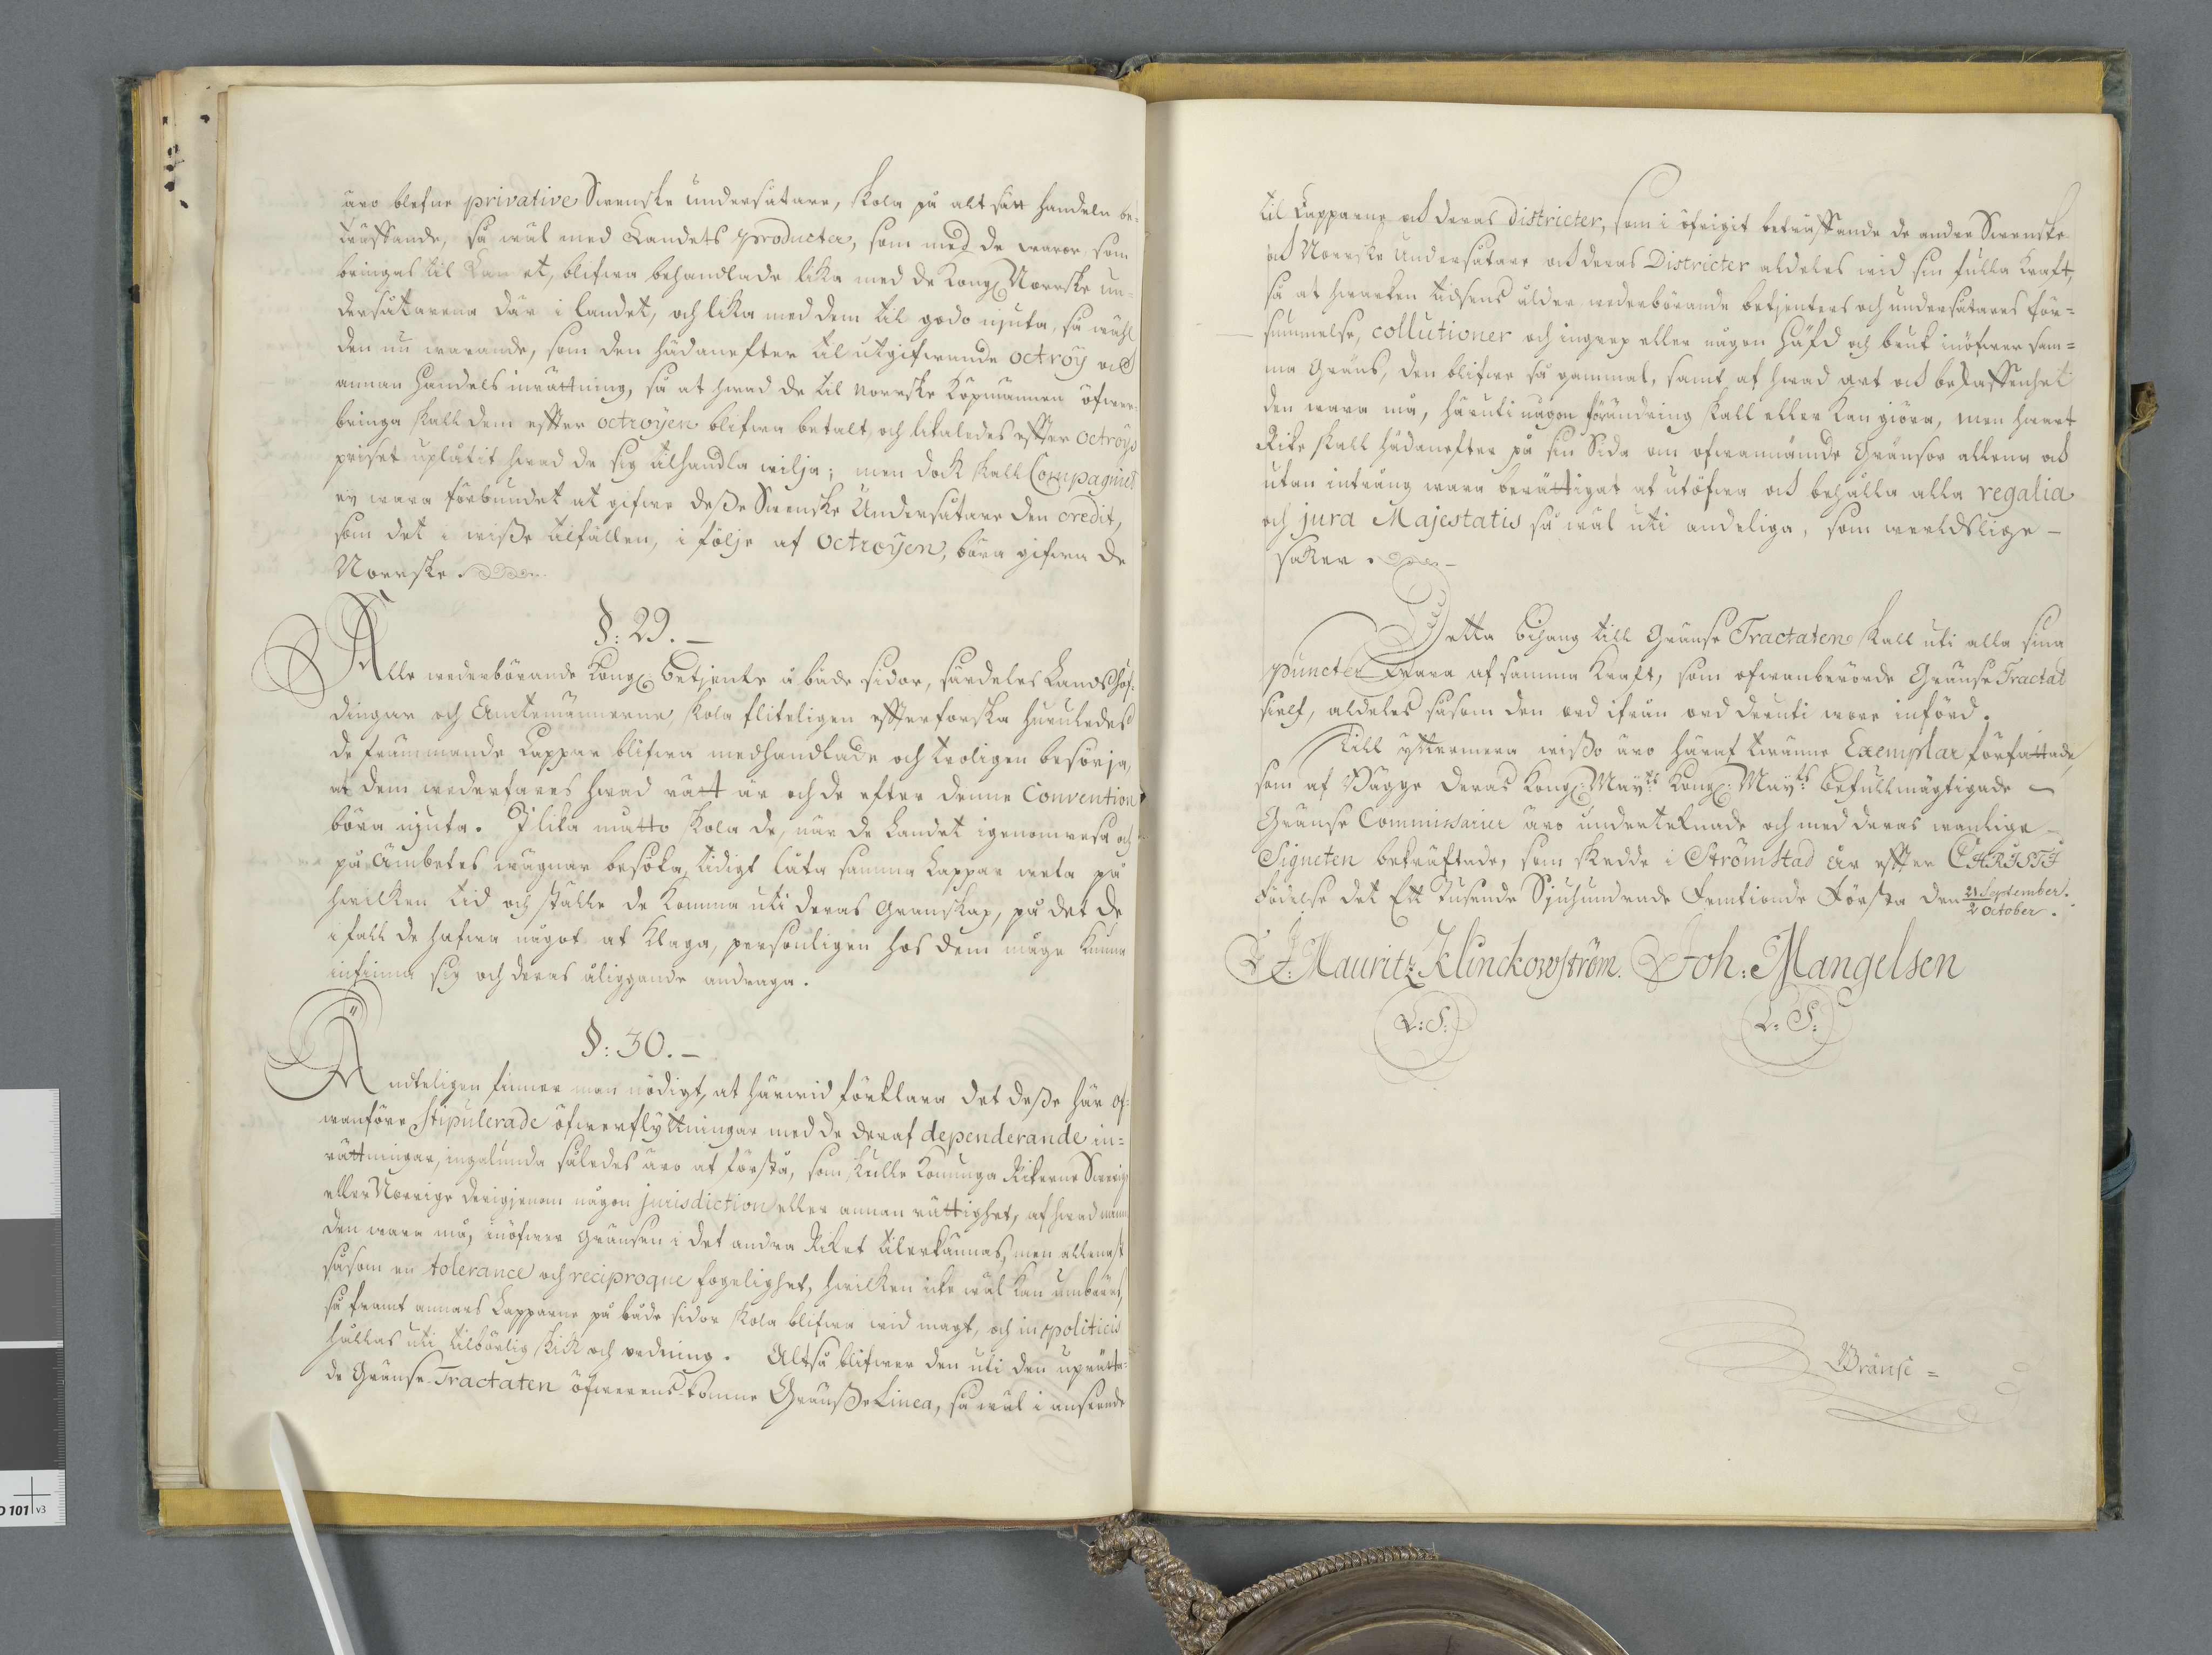 äro blefne privative Swenske undersåtare, skola på alt sätt handeln be-
träffande, så wäl med Landets producter, som med de waror, som
bringas til Landet, blifwa behandlade lika med de Kongl: Norrske un-
dersåtarena där i landet, och lika med dem til godo niuta, så wähl
den nu warande, som den hädanefter til utgifwande octroy och
annan handels inrättning, så at hwad de til Norrske Köpmännen öfwer-
bringa skall dem effter octroyen blifwa betalt, och likaledes effter octroys
priset uplåtit hwad de sig tilhandla wilja; men dock skall Compagniet
ej wara förbundet at gifwe deße Swenske Undersåtare den credit,
som det i wiße tilfällen, i följe af octroyen, böra gifwa de
Norrske.
§: 29.
Alle wederbörande Kongl: betjente å både sidor, särdeles Landshöf-
dingar och Amtemännerne, skola fliteligen effterforska huruledes
de främmande Lappar blifwa medhandlade och troligen besörja,
at dem wederfares hwad rätt är och de efter denne Convention
böra njuta. I lika matto skola de, när de Landet igenomresa och
på Ämbetes wägnar besöka, tidigt låta samma Lappar weta på
hwilken tid och ställe de komma uti deras Granskap, på det de
i fall de hafwa något at klaga, personligen hos dem måge kunna
infinna sig och deras åliggande andraga.
§: 30.
Ändteligen finner man nödigt, at härwid förklara det deße här of-
wanföre stipulerade öfwerflyttningar med de deraf dependerande in-
rättningar, ingalunda således äro at förstå, som skulle Konunga Rikerne Swerige
eller Norrige derigjenom någon jurisdiction eller annan rättighet, af hwad namn
den wara må, inöfwer Gränsen i det andra Riket tilerkännas, men allenast
såsom en tolerance och reciproque fogelighet, hwilken icke wäl kan umbäras,
så framt annars Lapparne på både sidor skola blifwa wid magt, och in politicis
hållas uti tilbörlig skick och ordning. Altså blifwer den uti den uprätta-
de Gränse-Tractaten öfwerens-komne Gränße Linea, så wäl i anseende
til Lapparne och deras districter, som i öfrigit beträffande de andre Swenske
och Norrske Undersåtare och deras Districter aldeles wid sin fulla Kraft,
så at hwarken tidsens ålder wederbörande betjenters och undersåtares för-
summelse, collutioner och ingrep eller någon häfd och bruk inöfwer sam-
ma Gräns, den blifwe så gammal, samt af hwad art och beskaffenhet
den wara må, häruti någon förändring skall eller kan giöra, men hwart
Rike skall hädanefter på sin Sida om ofwannämde Gränsor allena och
utan intrång wara berättigat at utöfwa och behålla alla regalia
och jura Majestatis så wäl uti andeliga, som werldslige
saker.
Detta bihang till Gränse Tractaten skall uti alla sina
puncter wara af samma Kraft, som ofwanberörde Gränse Tractat
sielf, aldeles såsom den ord ifrån ord deruti wore införd.
Till yttermera wißo äro häraf twänne Exemplar författade,
som af Bägge deras Kongl: Mayts Kongl: Mayts befullmägtigade
Gränse Commissarier äro underteknade och med deras wanlige
Signeten bekräftade, som skedde i Strömstad år effter CHRISTI
födelse det Ett Tusende Sjuhundrade Femtionde Första den 21 September. / 2 October.
J: Mauritz Klinckowström. Joh: Mangelsen
L: S: L: S:
Gränse =
D 101 v3